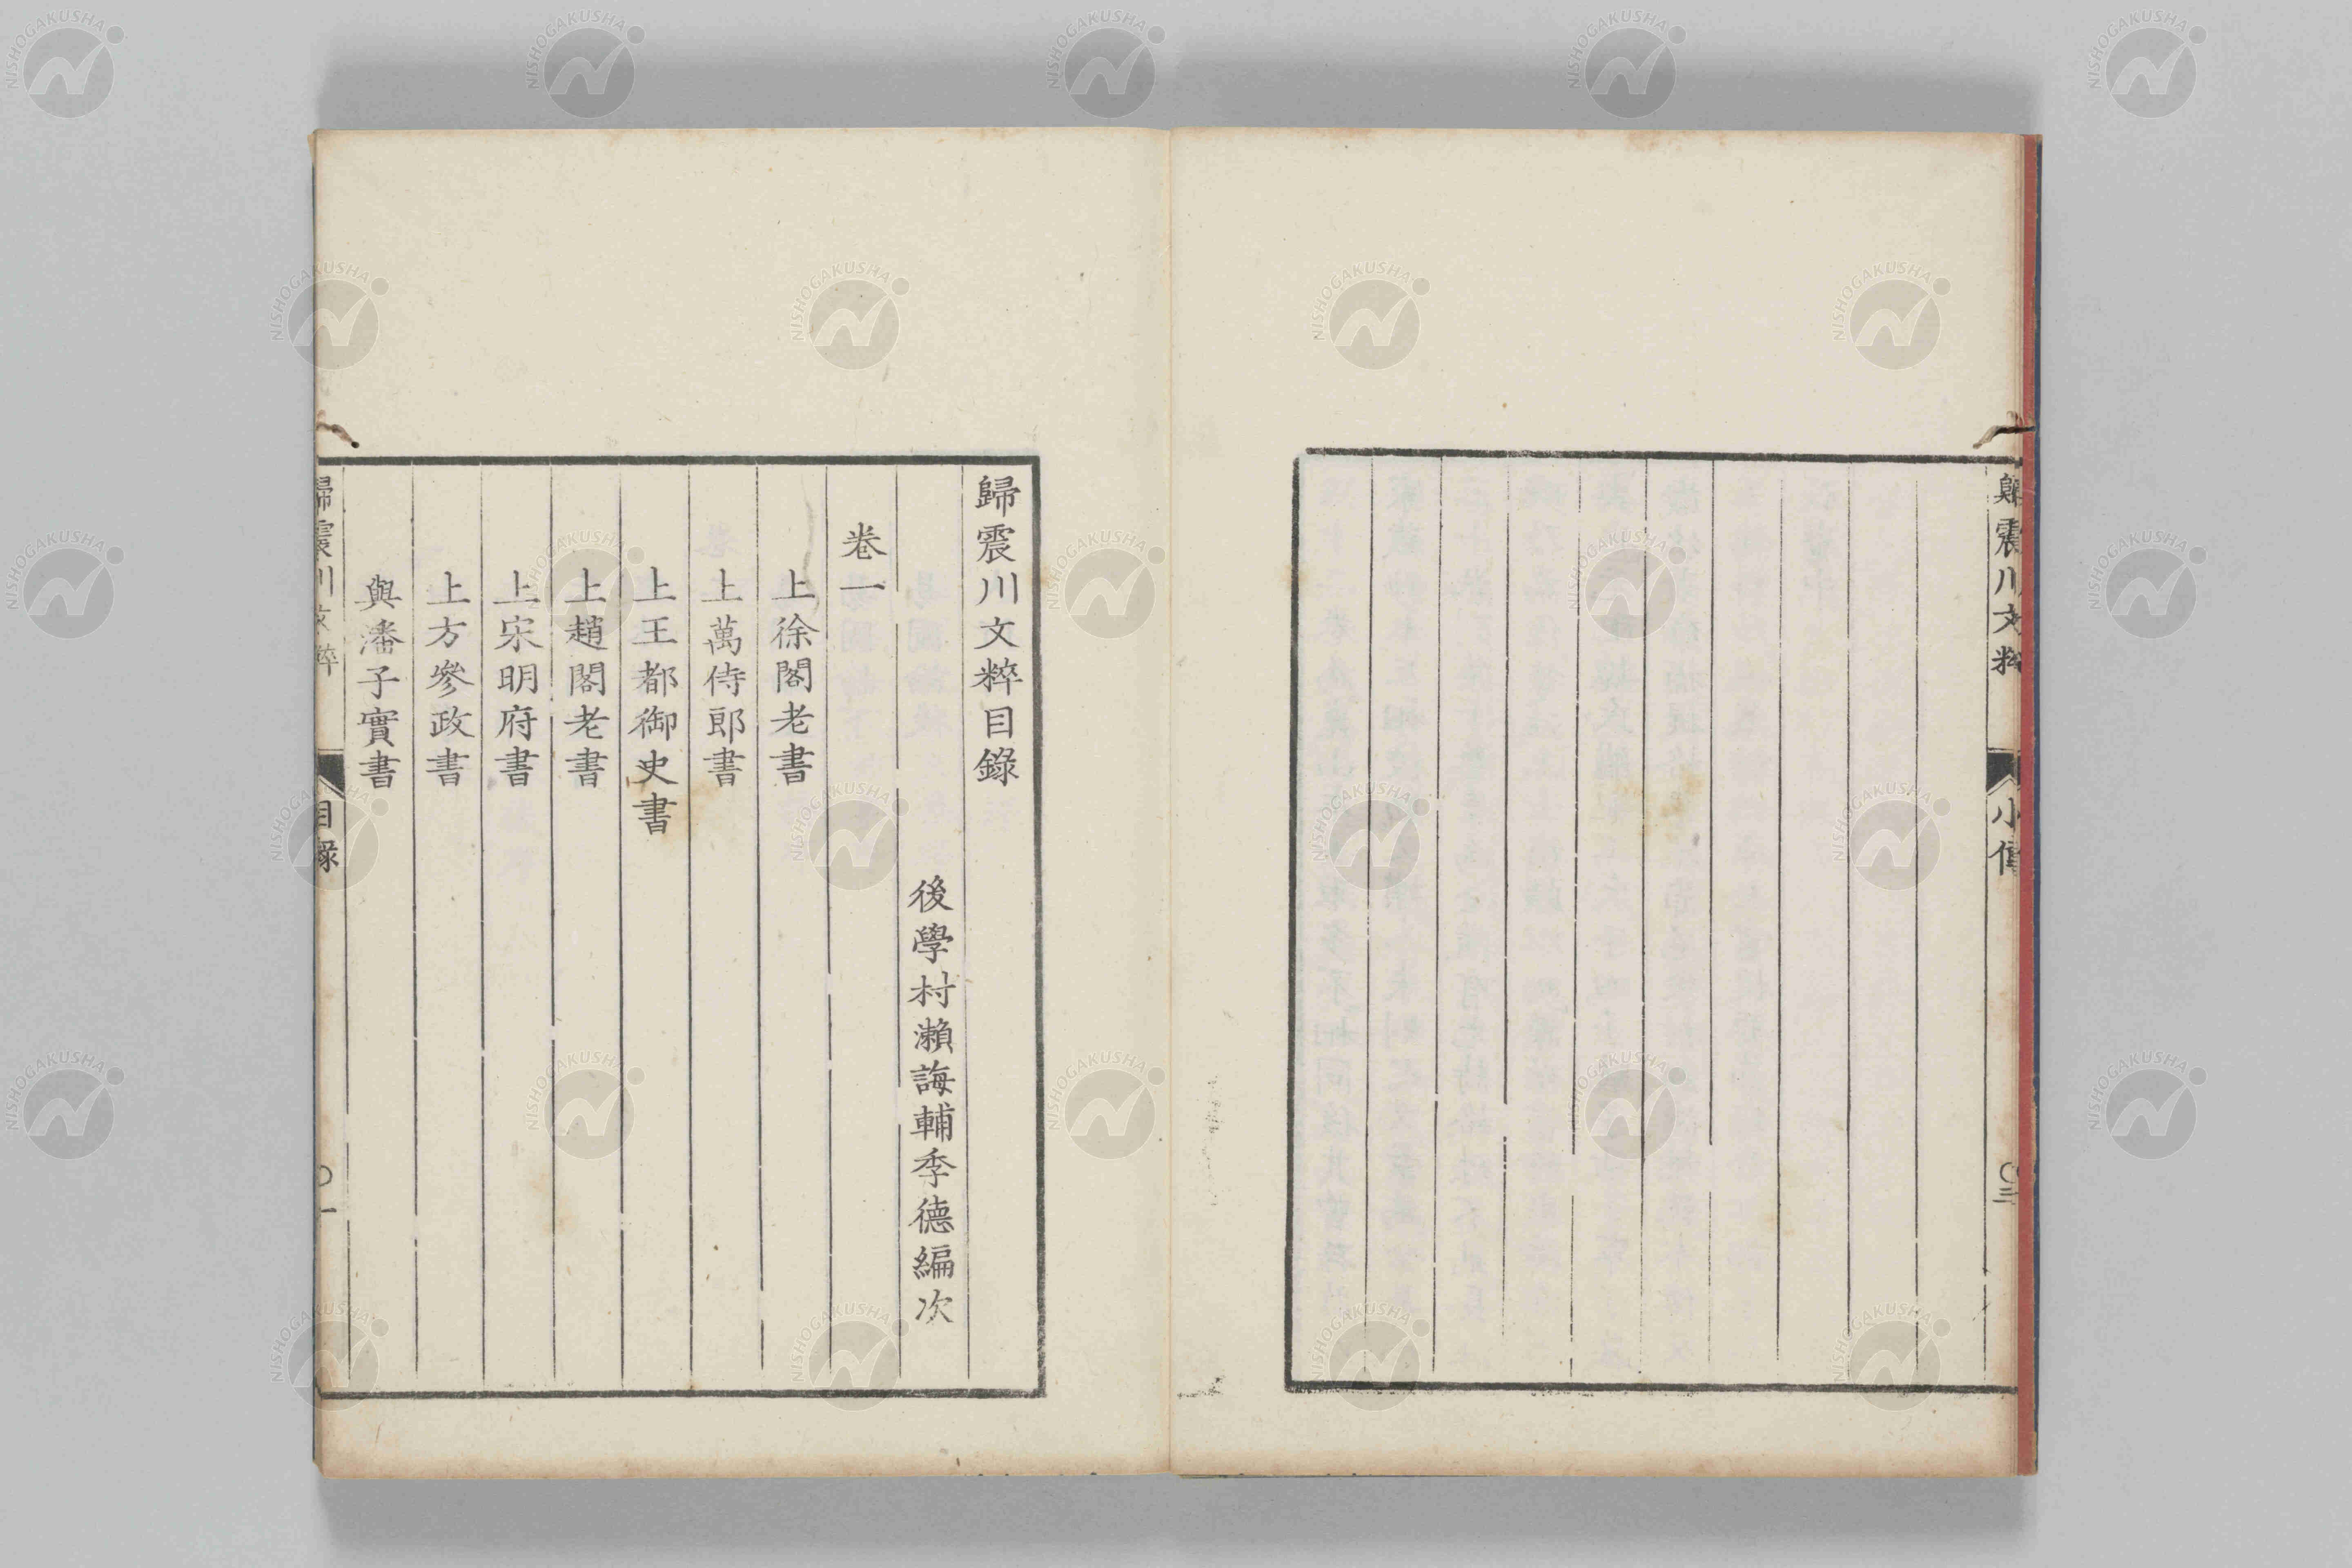 歸震川文粹
小傳
〇三
歸震川文粹目錄
後學村瀨誨輔季德編次
卷一
上徐閣老書
上萬侍郎書
上王都御史書
上趙閣老書
上宋明府書
上方參政書
與潘子實書
歸震川文粹
目錄
〇一
NISHOGAKUSHA